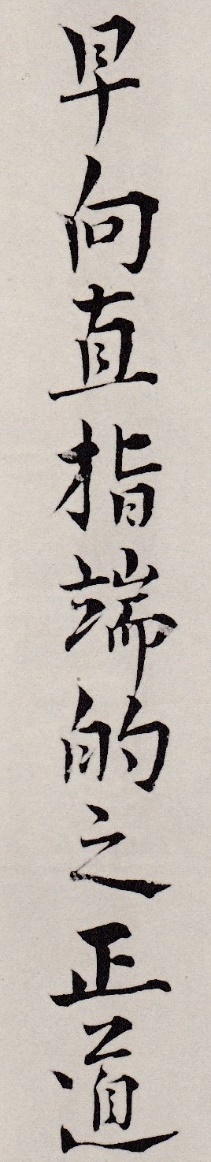 早向直指端的之正道